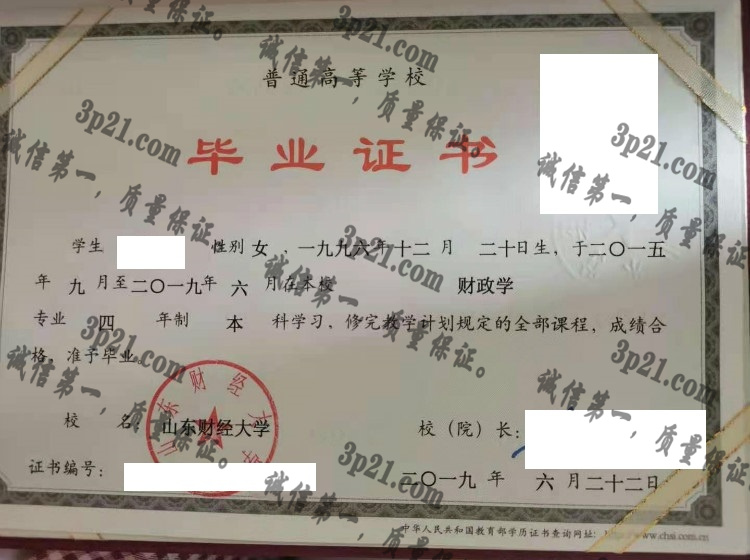 普通高等学校
毕业证书
学生 性别 女 、一九九六年十二月 二十日生，于二〇一五
年 九 月至二〇一九年 六 月在本校 财政学
专业 四 年制 本 科学习，修完教学计划规定的全部课程，成绩合
格，准予毕业。
山东财经大学
校 名：山东财经大学 校（院）长：
证书编号：
二〇一九 年 六 月二十二日
中华人民共和国教育部学历证书查询网址：http://www.chsi.com.cn
3p21.com
诚信第一，质量保证。
3p21.com
诚信第一，质量保证。
3p21.com
诚信第一，质量保证。
3p21.com
诚信第一，质量保证。
3p21.com
诚信第一，质量保证。
3p21.com
诚信第一，质量保证。
3p21.com
诚信第一，质量保证。